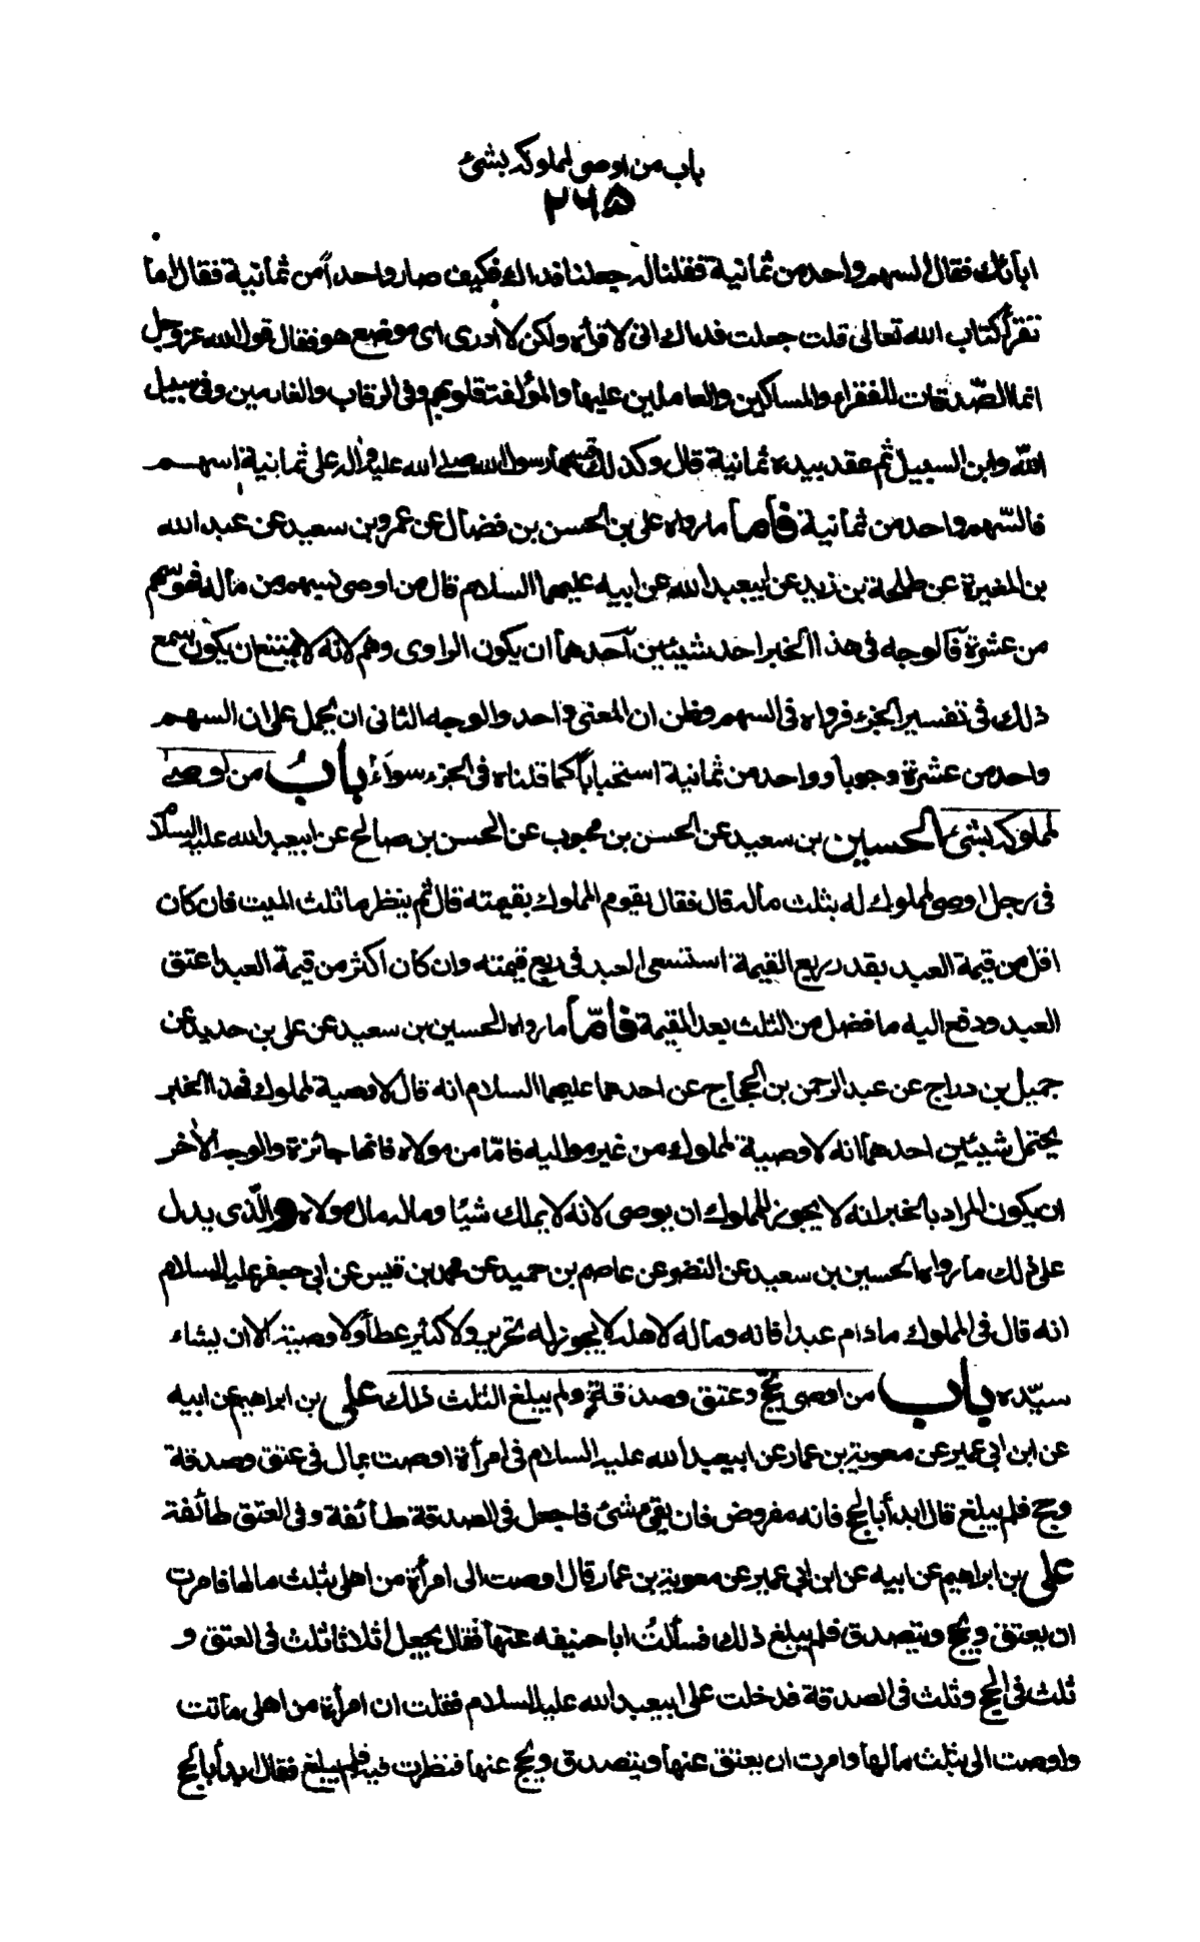 باب من اوصى لمملوكه بشئ
٢٦٥
ابائك فقال السهم واحد من ثمانية فقلنا له جعلنا فداك فكيف صار واحداً من ثمانية فقال اما
تقرأ كتاب الله تعالى قلت جعلت فداك انى لاقرأه ولكن لا أدرى اى موضع هو فقال قول الله عز وجل
انما الصّدقات للفقراء والمساكين والعاملين عليها والمؤلفة قلوبهم وفى الرقاب والغارمين وفى سبيل
اللّه وابن السبيل ثم عقد بيده ثمانية قال وكذلك قسمها رسول الله صلى الله عليه وآله على ثمانية اسهم
فالسّهم واحد من ثمانية فأما ما رواه على بن الحسن بن فضال عن عمرو بن سعيد عن عبد الله
بن المغيرة عن طلحة بن زيد عن ابيعبد الله عن ابيه عليهما السلام قال من اوصى بسهم من ماله فهو سهم
من عشرة فالوجه فى هذا الخبر احد شيئين احدهما ان يكون الراوى وهم لانه لا يمتنع ان يكون سمع
ذلك فى تفسير الجزء فرواه فى السهم وظن ان المعنى واحد والوجه الثانى ان يحمل على ان السهم
واحد من عشرة وجوباً وواحد من ثمانية استحباباً كما قلناه فى الجزء سواء بابُ من اوصى
لمملوكه بشئ الحسين بن سعيد عن الحسن بن محبوب عن الحسن بن صالح عن ابيعبد الله عليه السلام
فى رجل اوصى لمملوك له بثلث ماله قال فقال يقوم المملوك بقيمته قال ثم ينظر ما ثلث الميت فان كان
اقل من قيمة العبد بقدر ربع القيمة استسعى العبد فى ربع قيمته وان كان اكثر من قيمة العبد اعتق
العبد ودفع اليه ما فضل من الثلث بعد القيمة فامّا ما رواه الحسين بن سعيد عن على بن حديد عن
جميل بن دراج عن عبد الرحمن بن الحجاج عن احدهما عليهما السلام انه قال لا وصية لمملوك فهذا الخبر
يحتمل شيئين احدهما انه لا وصية لمملوك من غير مواليه فامّا من مولاه فانها جائزة والوجه الأخر
ان يكون المراد بالخبر انه لا يجوز للمملوك ان يوصى لانه لا يملك شيئا وماله مال مولاه والّذى يدل
على ذلك ما رواه الحسين بن سعيد عن النضر عن عاصم بن حميد عن محمد بن قيس عن ابى جعفر عليه السلام
انه قال فى المملوك ما دام عبدا فانه وماله لاهله لا يجوز له تحرير ولا كثير عطاء ولا وصية الا ان يشاء
سيّده باب من اوصى بحجّ وعتق وصدقة ولم يبلغ الثلث ذلك على بن ابراهيم عن ابيه
عن ابن ابى عمير عن معوية بن عمار عن ابيعبد الله عليه السلام فى امرأة اوصت بمال فى عتق وصدقة
وحج فلم يبلغ قال ابدأ بالحج فانه مفروض فان بقى شئ فاجعل فى الصدقة طائفة وفى العتق طائفة
على بن ابراهيم عن ابيه عن ابن ابى عمير عن معوية بن عمار قال اوصت الى امرأة من اهلى بثلث مالها فامرت
ان يعتق ويحج ويتصدق فلم يبلغ ذلك فسألتُ ابا حنيفه عنها فقال يجعل أثلاثا ثلث فى العتق و
ثلث فى الحج وثلث فى الصدقة فدخلت على ابيعبد الله عليه السلام فقلت ان امرأة من اهلى ماتت
واوصت الى بثلث مالها وامرت ان يعتق عنها ويتصدق ويحج عنها فنظرت فيه فلم يبلغ فقال ابدأ بالحج